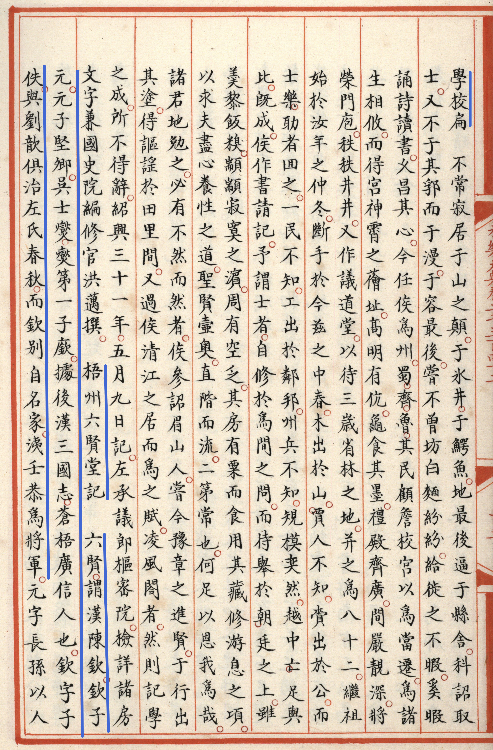 學校扁 不常寂居于山之顛于氷井于鰐魚地最後逼于縣舍科詔取
士又不于其郛而于漫于容最後嘗不曾坊白麵紛紛給徙之不暇奚暇
誦詩讀書文昌其心今任侯爲州蜀齊魯其民顧詹校宮以爲當遷爲諸
生相攸而得宮神霄之薈址高明有伉龜食其墨禮殿齊廣間嚴靚深將
榮門庖秩秩井井又作議道堂以待三歲省林之地并之爲八十二繼祖
始於汝羊之仲冬斷手於今茲之中春木出於山賈人不知賣出於公而
士樂助者田之一民不知工出於鄰邦州兵不知規模奭然越中亡足與
比旣成侯作書請記予謂士者自修於爲間之問而待舉於朝廷之上雖
羙藜飯糗顑顑寂寞之濱周有空乏其房有粟而食用其藏修游息之項
以求夫盡心養性之道聖賢壼奧直階而流二第常也何足以恩我爲哉
諸君地勉之必有不然而然者侯參詔眉山人嘗今豫章之進賢于行出
其塗得謳謠於田里間又過侯清江之居而爲之賦凌風閣者然則記學
之成所不得辭紹興三十一年五月九日記左承議郎樞密院檢詳諸房
文字兼國史院編修官洪邁撰 梧州六賢堂記 六賢謂漢陳欽欽子
元元子堅卿吳士燮燮第一子廞據後漢三國志蒼梧廣信人也欽字子
佚與劉歆俱治左氏春秋而欽别自名家洟壬恭爲將軍元字長孫以人